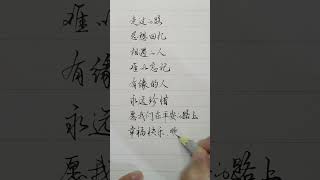 走过一路
总想回忆
相遇一人
难以忘记
有缘的人
永远珍惜
愿我们在平安的路上
幸福快乐